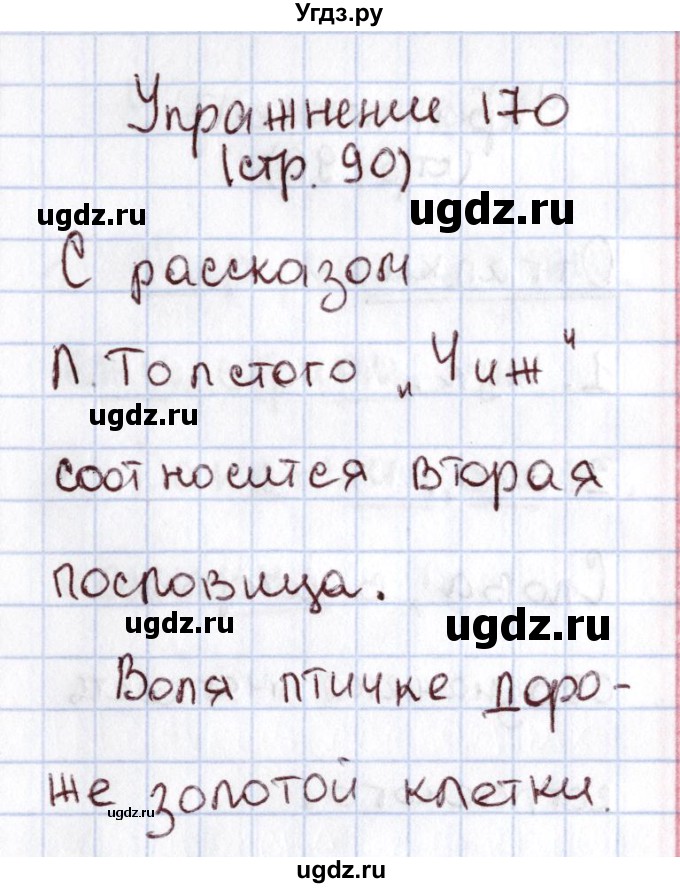 Угдз.ру
Упражнение 170
(стр. 90)
ugdz.ru ugdz.ru
С рассказом
Л. Толстого „Чиж"
ugdz.ru
соотносится вторая
пословица.
ugdz.ru ugdz.ru
Воля птичке доро-
же золотой клетки.
ugdz.ru ugdz.ru
ugdz.ru